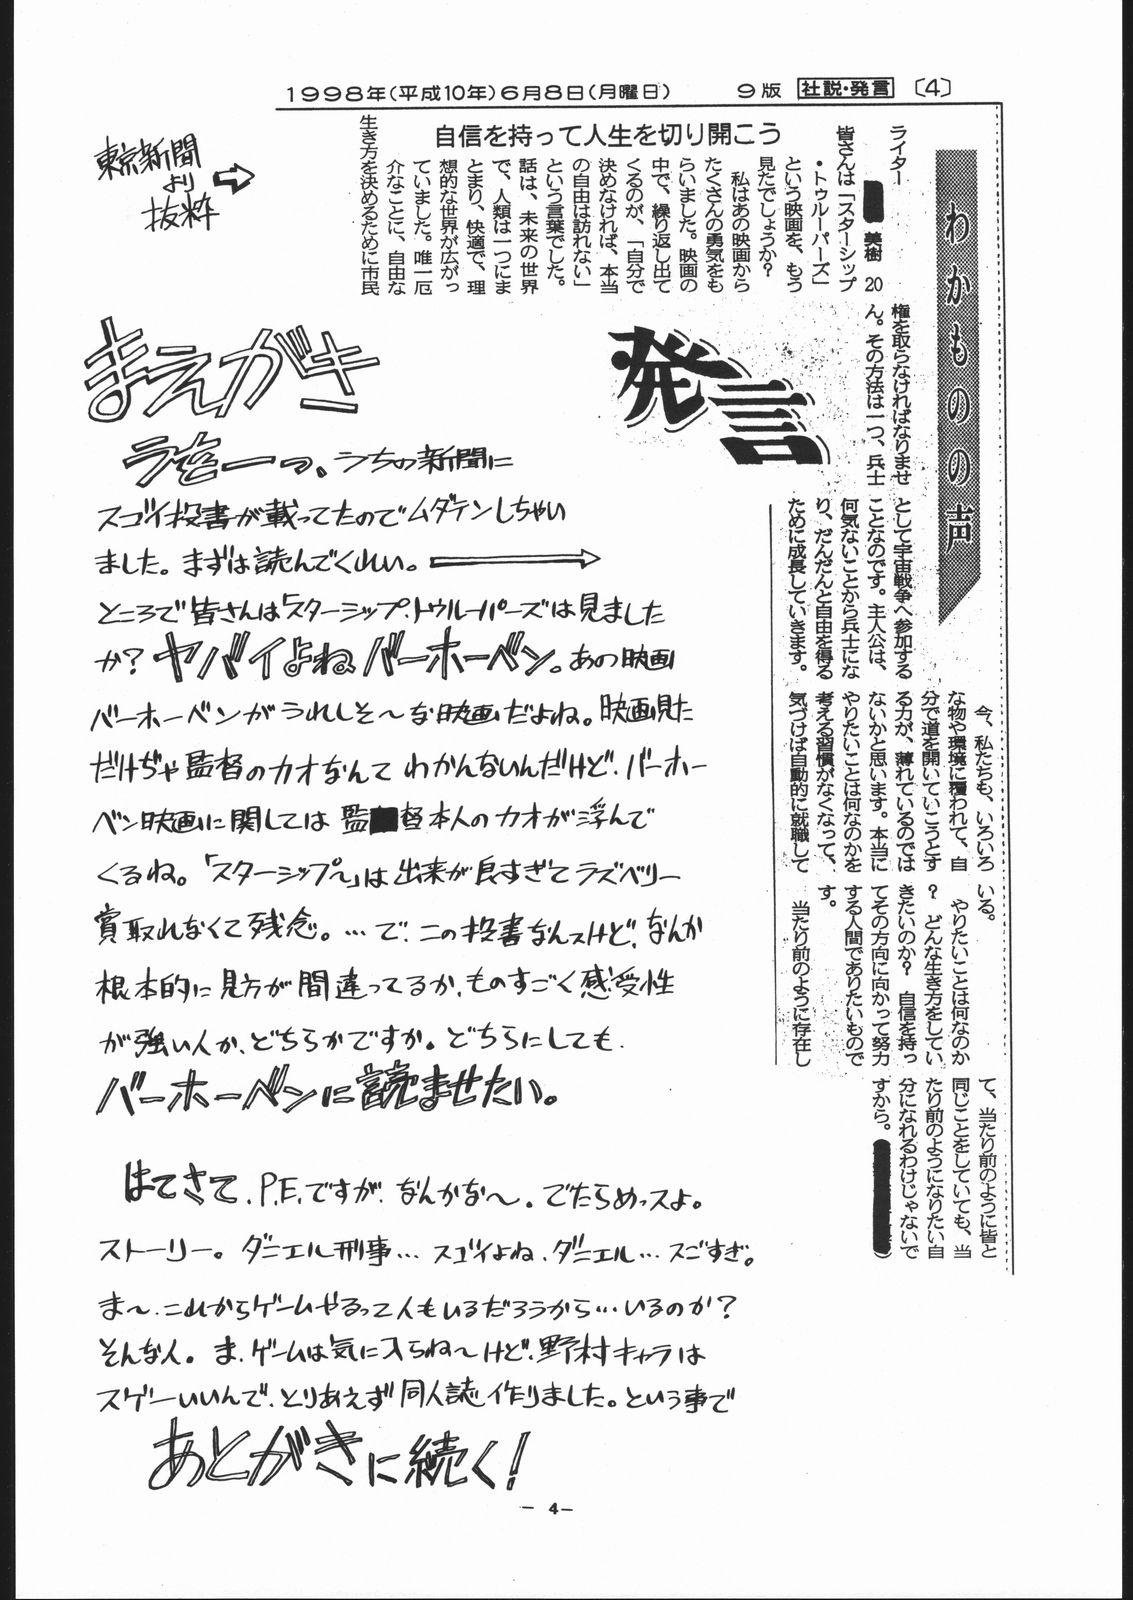 1998年(平成10年)6月8日(月曜日)　9版　社説・発言　〔4〕
東京新聞
より
抜粋
わかものの声
自信を持って人生を切り開こう
ライター　美樹　20
皆さんは「スターシップ
・トゥルーパーズ」
という映画を、もう
見たでしょうか？
私はあの映画から
たくさんの勇気をも
らいました。映画の
中で、繰り返し出て
くるのが、「自分で
決めなければ、本当
の自由は訪れない」
という言葉でした。
話は、未来の世界
で、人類は一つにま
とまり、快適で、理
想的な世界が広がっ
ていました。唯一厄
介なことに、自由な
生き方を決めるために市民
権を取らなければなりませ
ん。その方法は一つ、兵士
として宇宙戦争へ参加する
ことなのです。主人公は、
何気ないことから兵士にな
り、だんだんと自由を得る
ために成長していきます。
今、私たちも、いろいろ
な物や環境に覆われて、自
分で道を開いていこうとす
る力が、薄れているのでは
ないかと思います。本当に
やりたいことは何なのかを
考える習慣がなくなって、
気づけば自動的に就職して
いる。
やりたいことは何なのか
？　どんな生き方をしてい
きたいのか？　自信を持っ
てその方向に向かって努力
する人間でありたいもので
す。
当たり前のように存在し
て、当たり前のように皆と
同じことをしていても、当
たり前のようになりたい自
分になれるわけじゃないで
すから。
発言
まえがき
うちの新聞に
スゴイ投書が載ってたのでムダテンしちゃい
ました。まずは読んでくれい。
ところで皆さんは「スターシップ・トゥルーパーズ」は見ました
か？ヤバイよねバーホーベン。あの映画
バーホーベンがうれしそ〜な映画だよね。映画見た
だけぢゃ監督のカオなんてわかんないんだけど、バーホー
ベン映画に関しては監督本人のカオが浮んで
くるね。「スターシップ〜」は出来が良すぎてラズベリー
賞取れなくて残念。…で、この投書なんスけど、なんか
根本的に見方が間違ってるか、ものすごく感受性
が強い人か、どちらかですか。どちらにしても、
バーホーベンに読ませたい。
はてさて、P.E.ですが、なんかな〜。でたらめっスよ。
ストーリー。ダニエル刑事…スゴイよね、ダニエル…スごすぎ。
ま〜、これからゲームやるって人もいるだろうから…いるのか？
そんな人。ま、ゲームは気に入らね〜けど、野村キャラは
スゲーいいんで、とりあえず同人誌作りました。という事で
あとがきに続く！
－ 4 －